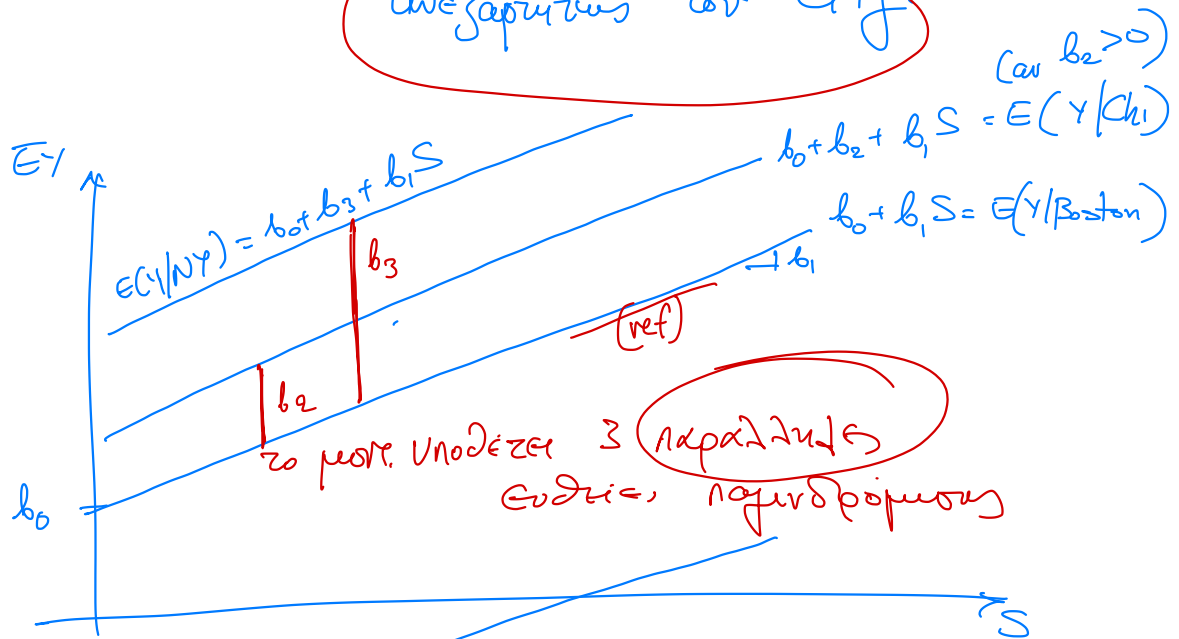 ανεξαρτητως του City
(αν b₂>0)
EY
E(Y/NY) = b₀+b₃+b₁S
b₀+b₂+b₁S = E(Y/Chi)
b₀+b₁S = E(Y/Boston)
b₁
b₃
(ref)
b₂
το μοντ. υποθέτει 3 παράλληλες
ευθείες παλινδρόμησης
b₀
S